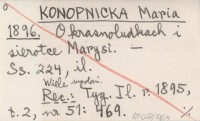 KONOPNICKA Maria
1896. O krasnoludkach i
sierotce Marysi. —
Ss. 224, il.
Wiele wydań.
Rec.: Tyg. Il. r. 1895,
t. 2, na 51: 469.